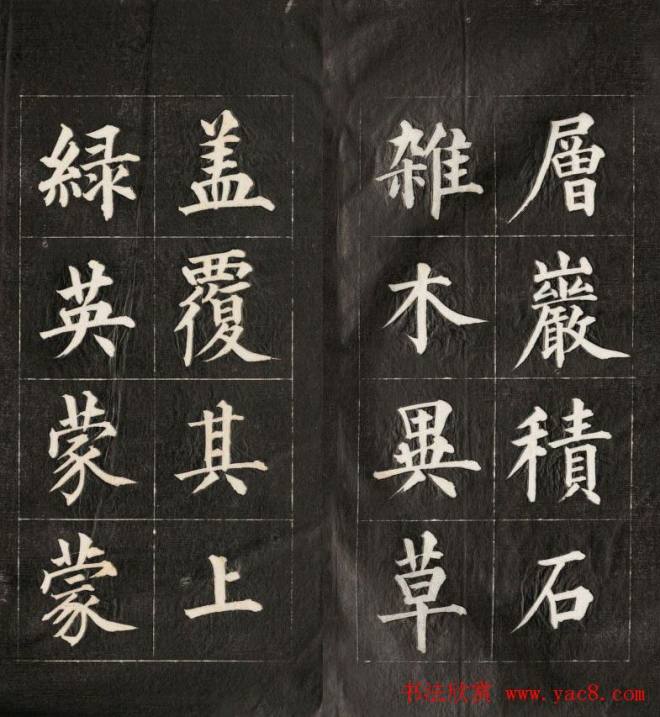 層巖積石
雜木異草
盖覆其上
緑英蒙蒙
书法欣赏 www.yac8.com